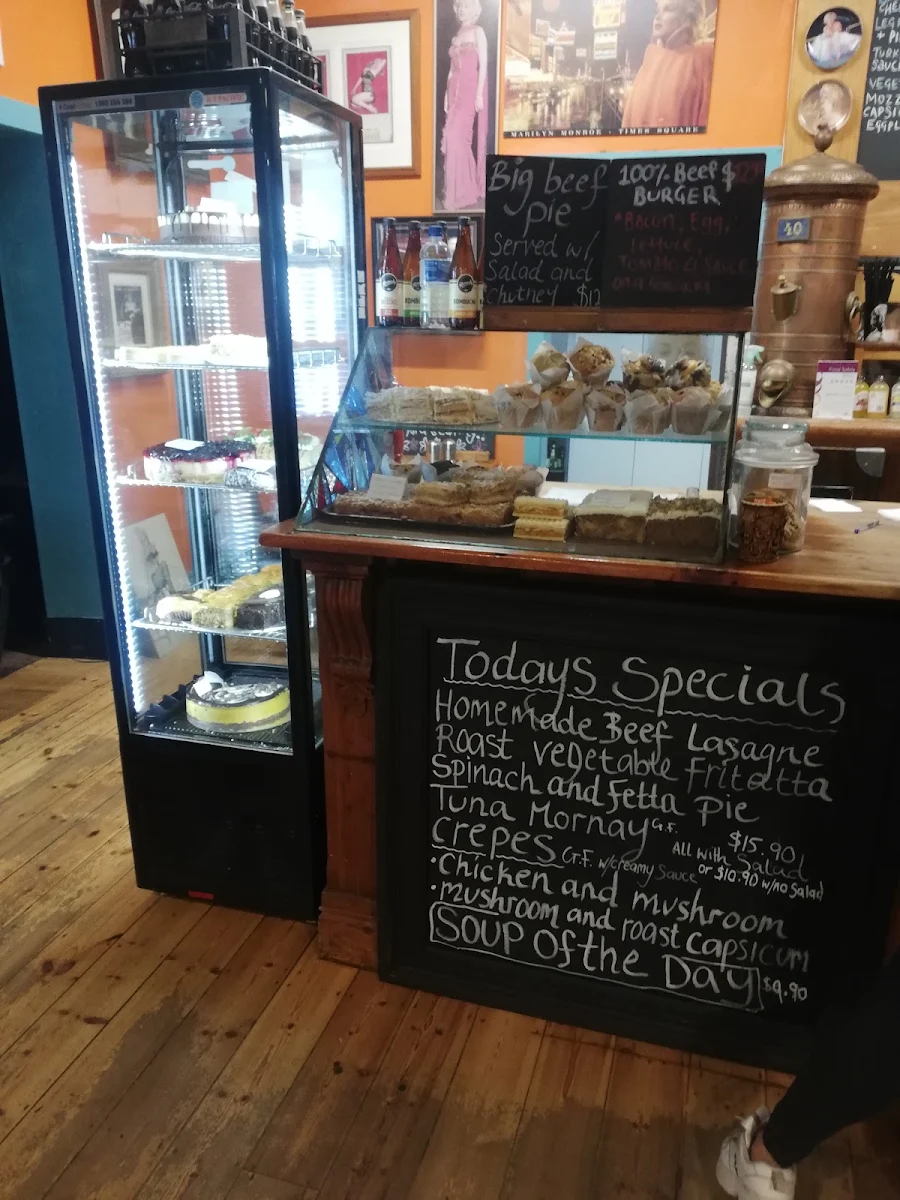 MARILYN MONROE · TIMES SQUARE
Big beef
pie
Served w/
Salad and
chutney $12
100% Beef $
BURGER
*Bacon, Egg,
lettuce,
Tomato & Sauce
40
KOMBUCHA
Todays Specials
Homemade Beef Lasagne
Roast vegetable fritatta
Spinach and fetta pie
Tuna Mornay G.F.
$15.90
All with Salad
or $10.90 w/no salad
crepes G.F. w/creamy sauce
• Chicken and mushroom
• mushroom and roast capsicum
Soup Of the Day $9.90